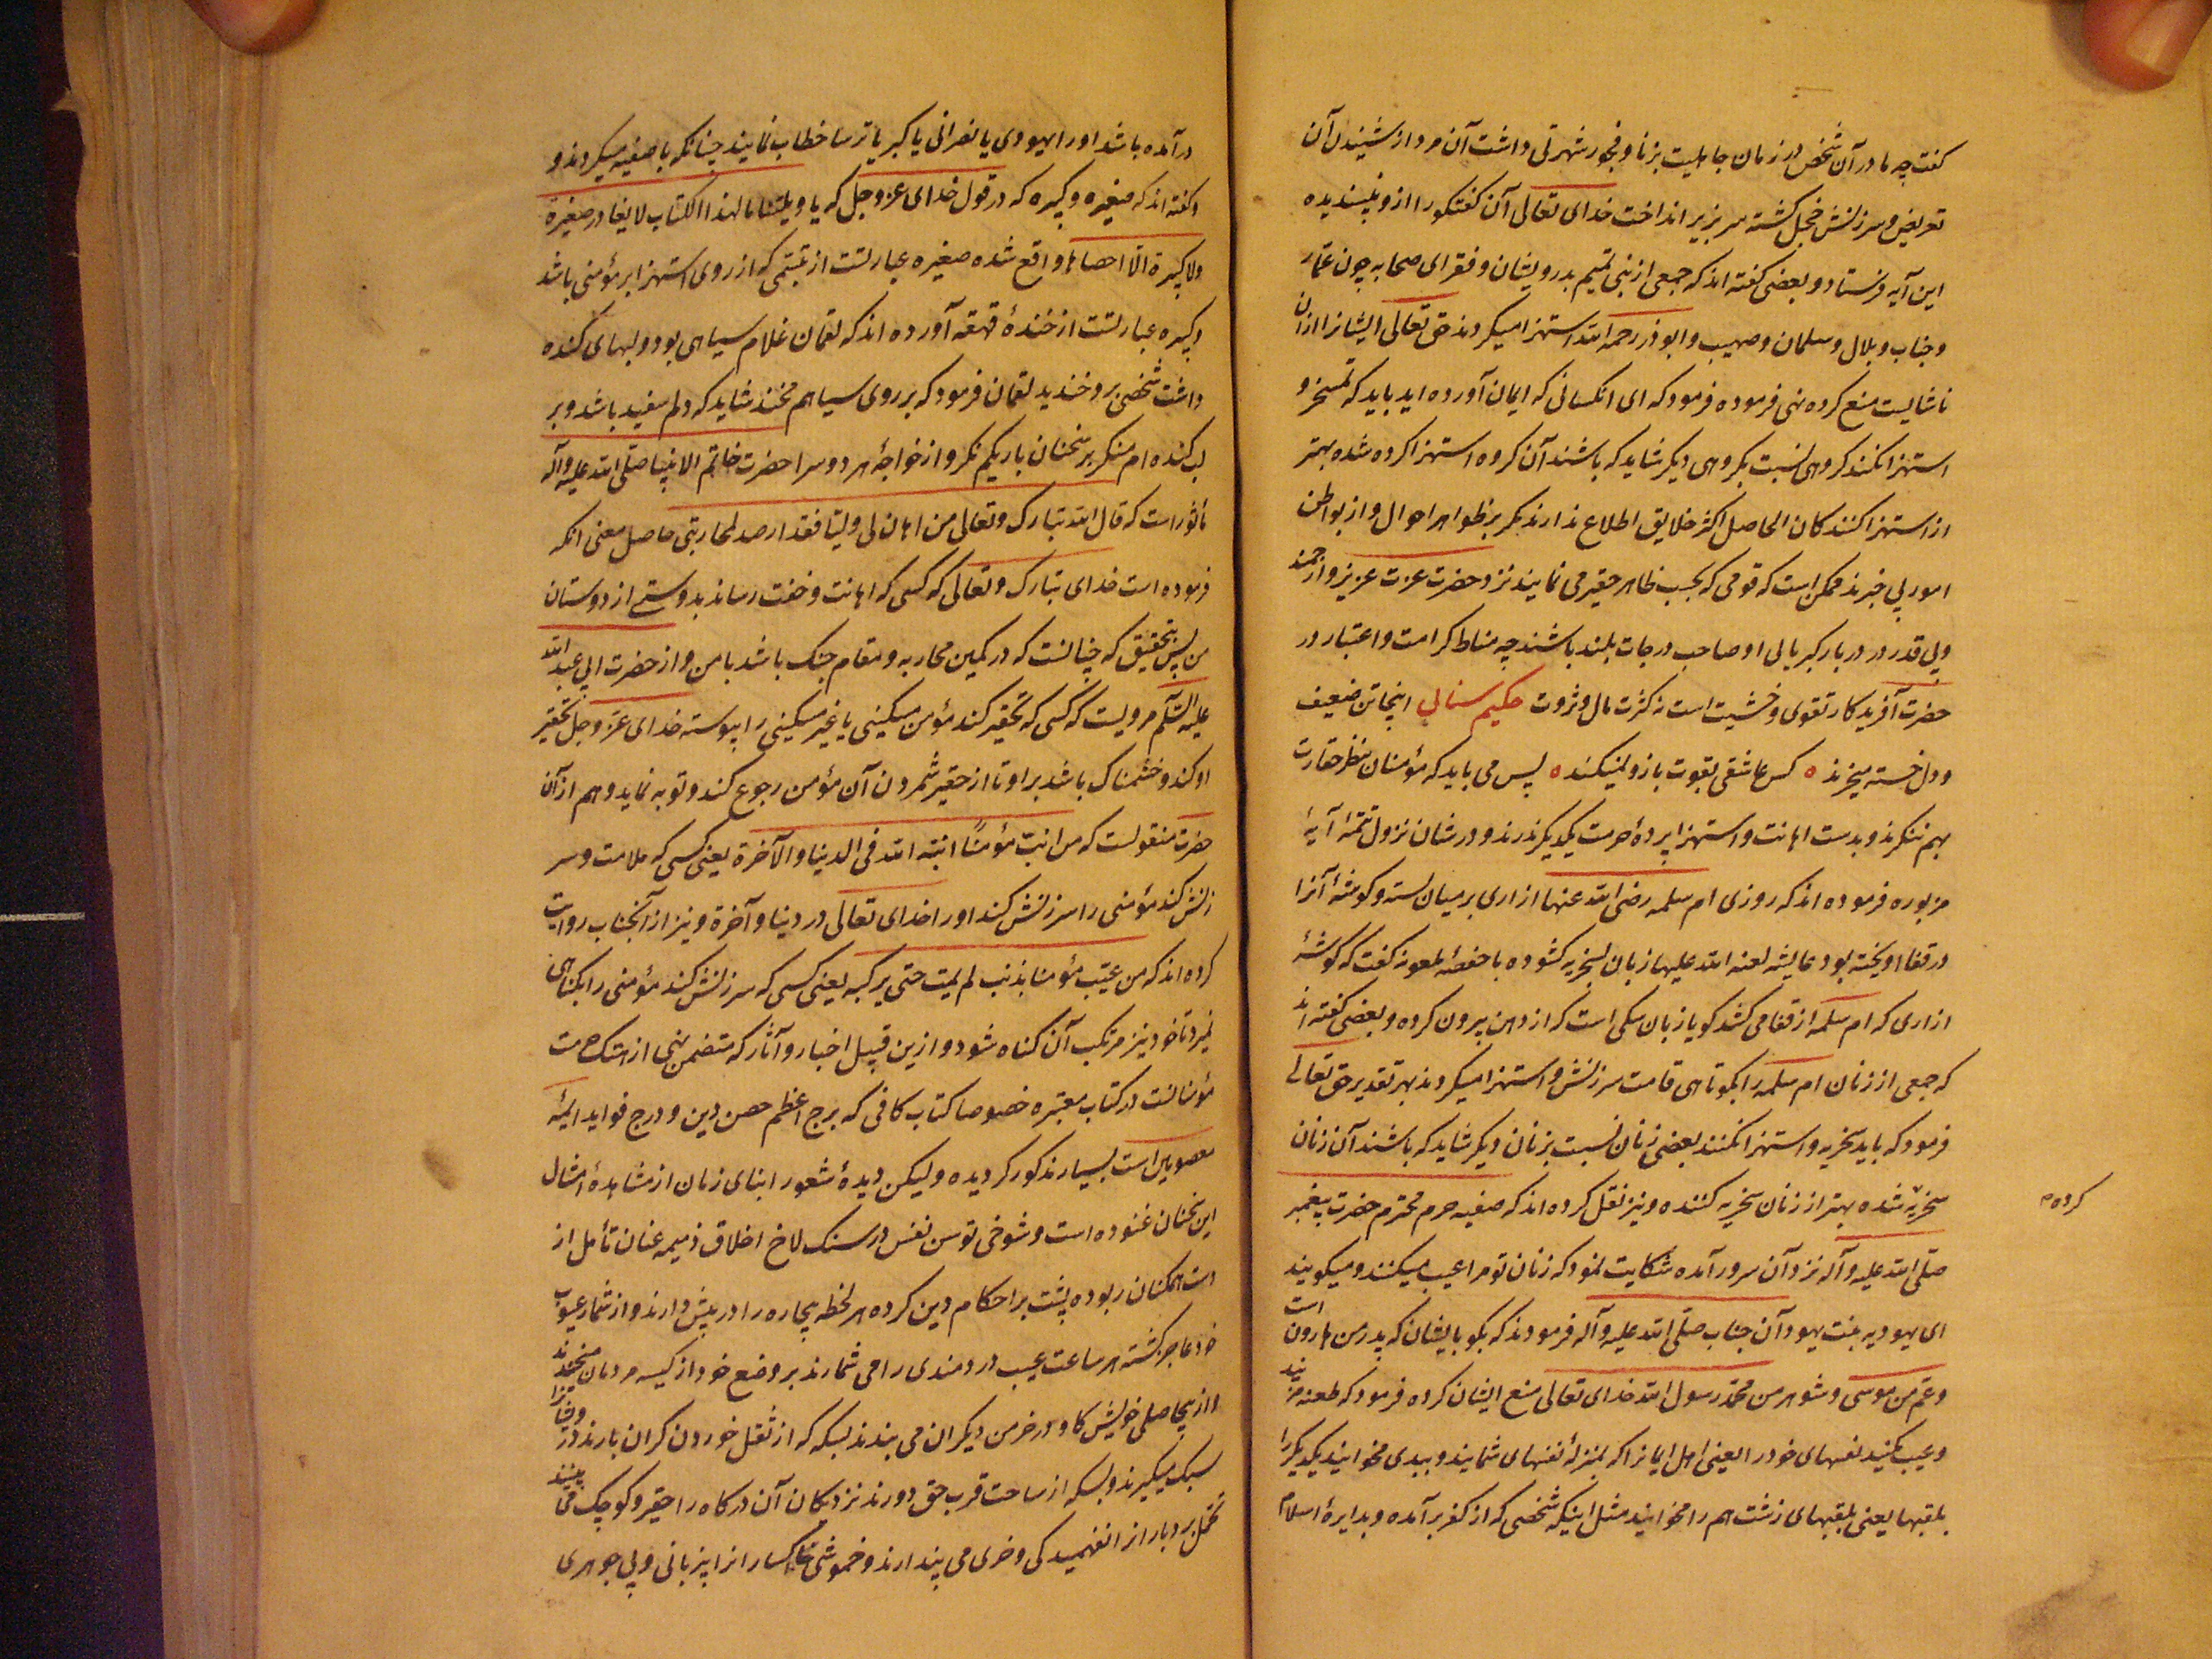 گفت چه مادر آن شخص در زمان جاهلیت بزنا و فجور شهرتی داشت آن مرد از شنیدن آن
تعریض و سرزنش خجل گشته سر بزیر انداخت خدای تعالی آن گفتگو را از و نپسندیده
این آیه فرستاد و بعضی گفته اند که جمعی از بنی تمیم بدرویشان و فقرای صحابه چون عمّار
و خباب و بلال و سلمان و صهیب و ابوذر رحمه الله استهزا میکردند حق تعالی ایشانرا ازان
ناشایست منع کرده نهی فرموده فرمود که ای انکسانی که ایمان آورده اید باید که تمسخر و
استهزا نکنند کروهی نسبت بکروهی دیکر شاید که باشند آن کروه استهزا کرده شده بهتر
از استهزا کنندکان الحاصل اکثر خلایق اطلاع ندارند مکر بر ظواهر احوال و از بواطن
امور بی خبرند ممکن است که قومی که بحسب ظاهر حقیر می نمایند نزد حضرت عزت عزیز و ارجمند
وبی قدر در دربار کبریایی او صاحب درجات بلند باشند چه مناط کرامت و اعتبار در
حضرت آفریدکار تقوی و خشیت است نه کثرت مال و ثروت حکیم سنایی اینجا تن ضعیف
و دل خسته میخرند ٥ کس عاشقی بقوت بازو نمیکند ٥ پس می باید که مؤمنان بنظر حقارت
بهم ننکرند و بدست اهانت و استهزا پردهٔ حرمت یکدیکر ندرند و در شان نزول تتمّهٔ آیهٔ
مزبوره فرموده اند که روزی ام سلمه رضی الله عنها ازاری بر میان بسته و کوشهٔ آنرا
در قفا اویخته بود عایشه لعنه الله علیها زبان بسخریه کشوده با حفصهٔ ملعونه کفت که کوشهٔ
ازاری که ام سلمه از قفا می کشد کویا زبان سکی است که از دهن بیرون کرده و بعضی گفته اند
که جمعی از زنان ام سلمه را بکوتاهی قامت سرزنش و استهزا میکردند بهر تقدیر حق تعالی
فرمود که باید سخریه و استهزا نکنند بعضی زنان نسبت بزنان دیکر شاید که باشند آن زنان
سخریه شده بهتر از زنان سخریه کننده و نیز نقل کرده اند که صفیه حرم محترم حضرت پیغمبر
کرده م
صلّی الله علیه و آله نزد آن سرور آمده شکایت نمود که زنان تو مرا عیب میکنند و میکویند
ای یهودیه بنت یهود آن جناب صلّی الله علیه و آله فرمودند که بکو بایشان که پدر من هارون است
و عم من موسی و شوهر من محمّد رسول الله خدای تعالی منع ایشان کرده فرمود که طعنه مزنید
و عیب مکنید نفسهای خود را یعنی اهل ایمانرا که بمنزلهٔ نفسهای شمایند و ببدی مخوانید یکدیکر را
بلقبها یعنی بلقبهای زشت هم را مخوانید مثل اینکه شخصی که از کفر بر آمده و بدایرهٔ اسلام
در آمده باشد او را یهودی یا نصرانی یا کبر یا ترسا خطاب نمایند چنانکه با صفیه میکردند و
و کفته اند که صغیره و کبیره که در قول خدای عزّ و جل که یا ویلتنا ما لهذا الکتاب لا یغادر صغیرة
ولا کبیرة الّا احصاها واقع شده صغیره عبارتست از تبسّمی که از روی استهزا بر مؤمنی باشد
و کبیره عبارتست از خندهٔ قهقهه آورده اند که لقمان غلام سیاهی بود و لبهای کنده
داشت شخصی بر و خندید لقمان فرمود که بر روی سیاهم مخند شاید که دلم سفید باشد و بر
لب کنده ام منکر بر سخنان باریکم نکر و از خواجهٔ هر دو سرا حضرت خاتم الانبیا صلّی الله علیه و آله
مأثور است که قال الله تبارک و تعالی من اهان لی ولیّا فقد ارصد لمحاربتی حاصل معنی انکه
فرموده است خدای تبارک و تعالی که کسی که اهانت و خفت رساند بدوستی از دوستان
من پس بتحقیق که چنانست که در کمین محاربه و مقام جنک باشد با من و از حضرت ابی عبد الله
علیه السّلم مرویست که کسی که تحقیر کند مؤمن مسکینی یا غیر مسکینی را پیوسته خدای عزّ و جل تحقیر
او کند و خشمناک باشد بر او تا از حقیر شمردن آن مؤمن رجوع کند و توبه نماید و هم از آن
حضرت منقولست که من انّب مؤمنًا انّبه الله فی الدنیا و الآخرة یعنی کسی که ملامت و سر
زنش کند مؤمنی را سرزنش کند او را خدای تعالی در دنیا و آخرة و نیز از آنجناب روایت
کرده اند که من عیّب مؤمنا بذنب لم یمت حتی یرکبه یعنی کسی که سرزنش کند مؤمنی را بکناهی
نمیرد تا خود نیز مرتکب آن کناه شود و ازین قبیل اخبار و آثار که متضمن نهی از هتک حرمت
مؤمنانست در کتاب معتبره خصوصا کتاب کافی که برج اعظم حصن دین و درج فواید ایمّهٔ
معصومین است بسیار مذکور کردیده و لیکن دیدهٔ شعور ابنای زمان از مشاهدهٔ امثال
این سخنان غنوده است و شوخی توسن نفس در سنک لاخ اخلاق ذمیمه عنان تأمل از
دست همکنان ربوده پشت بر احکام دین کرده هر لحظه بیچاره را در پیش دارند و از شمار عیوب
خود عاجز کشته هر ساعت عیب دردمندی را می شمارند بر وضع خود از کیسه مردمان میخندند
و از بیحاصلی خویش کاو در خرمن دیکران می بندند بسکه که از ثقل خوردن کران بارند
سبک میکیرند و بسکه از ساحت قرب حق دورند نزدیکان آن درکاه را حقیر و کوچک می بینند
تحمل بردباران را نفهمیدکی و خری می پندارند و خموشی خاکسارانرا بیزبانی و بی جوهری